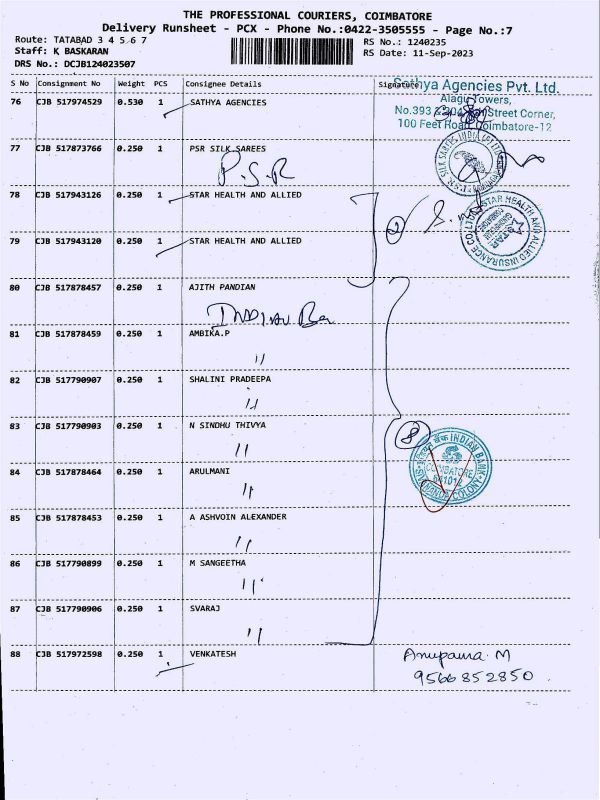 THE PROFESSIONAL COURIERS, COIMBATORE
Delivery Runsheet - PCX - Phone No.:0422-3505555 - Page No.:7
Route: TATABAD 3 4 5 6 7
RS No.: 1240235
Staff: K BASKARAN
RS Date: 11-Sep-2023
DRS No.: DCJB124023507
S No Consignment No Weight PCS Consignee Details Signature
Sathya Agencies Pvt. Ltd.
76 CJB 517974529 0.530 1 SATHYA AGENCIES
Alagu Towers,
No.393 Street Corner,
100 Feet Road, Coimbatore-12
77 CJB 517873766 0.250 1 PSR SILK SAREES
P.S.R
78 CJB 517943126 0.250 1 STAR HEALTH AND ALLIED
2
STAR HEALTH AND ALLIED INSURANCE CO.LTD
STAR
79 CJB 517943120 0.250 1 STAR HEALTH AND ALLIED
80 CJB 517878457 0.250 1 AJITH PANDIAN
INDIAN Ban
81 CJB 517878459 0.250 1 AMBIKA.P
"
82 CJB 517790907 0.250 1 SHALINI PRADEEPA
"
83 CJB 517790903 0.250 1 N SINDHU THIVYA
"
8
INDIAN BANK
COIMBATORE
641012
COLONY
84 CJB 517878464 0.250 1 ARULMANI
"
85 CJB 517878453 0.250 1 A ASHVOIN ALEXANDER
"
86 CJB 517790899 0.250 1 M SANGEETHA
"
87 CJB 517790906 0.250 1 SVARAJ
"
88 CJB 517972598 0.250 1 VENKATESH
Anupama. M
9566852850